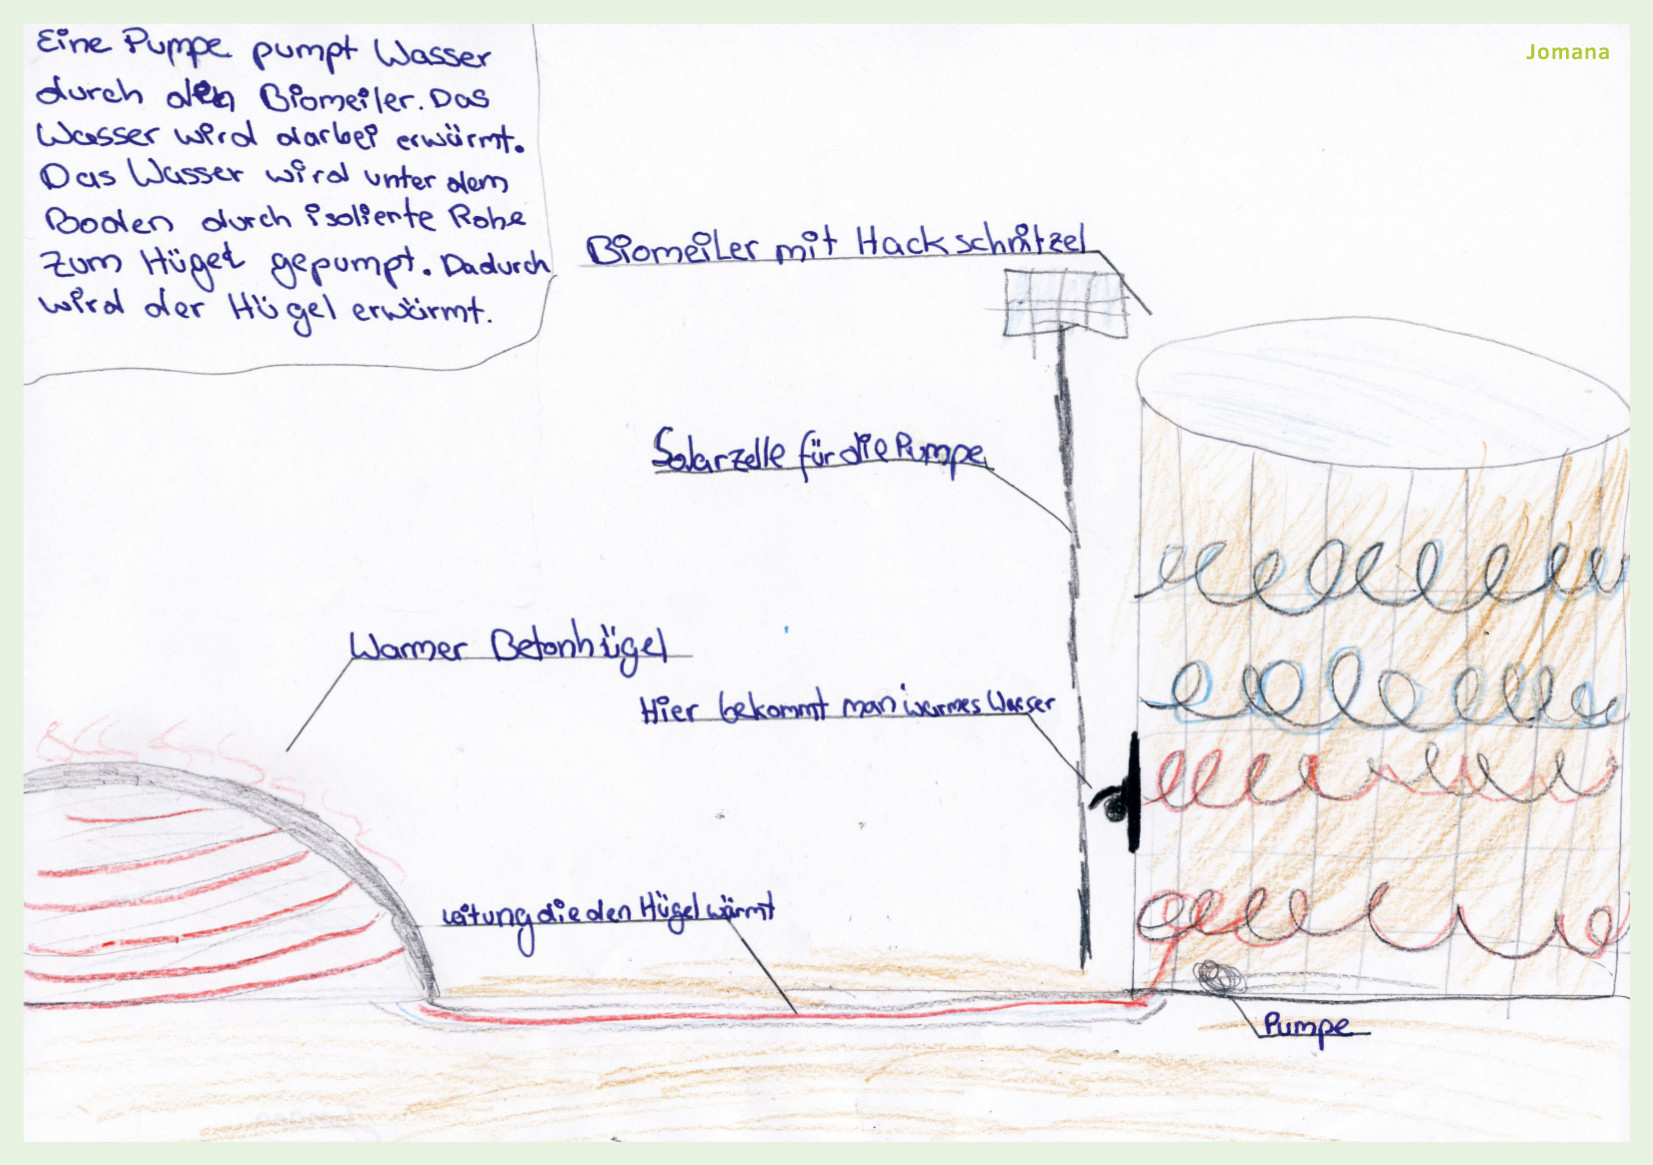 Eine Pumpe pumpt Wasser
durch den Biomeiler. Das
Wasser wird darbei erwärmt.
Das Wasser wird unter dem
Boden durch isolierte Rohe
zum Hügel gepumpt. Dadurch
wird der Hügel erwärmt.
Jomana
Biomeiler mit Hackschnitzel
Solarzelle für die Pumpe
Warmer Betonhügel
Hier bekommt man warmes Wasser
Leitung die den Hügel wärmt
Pumpe